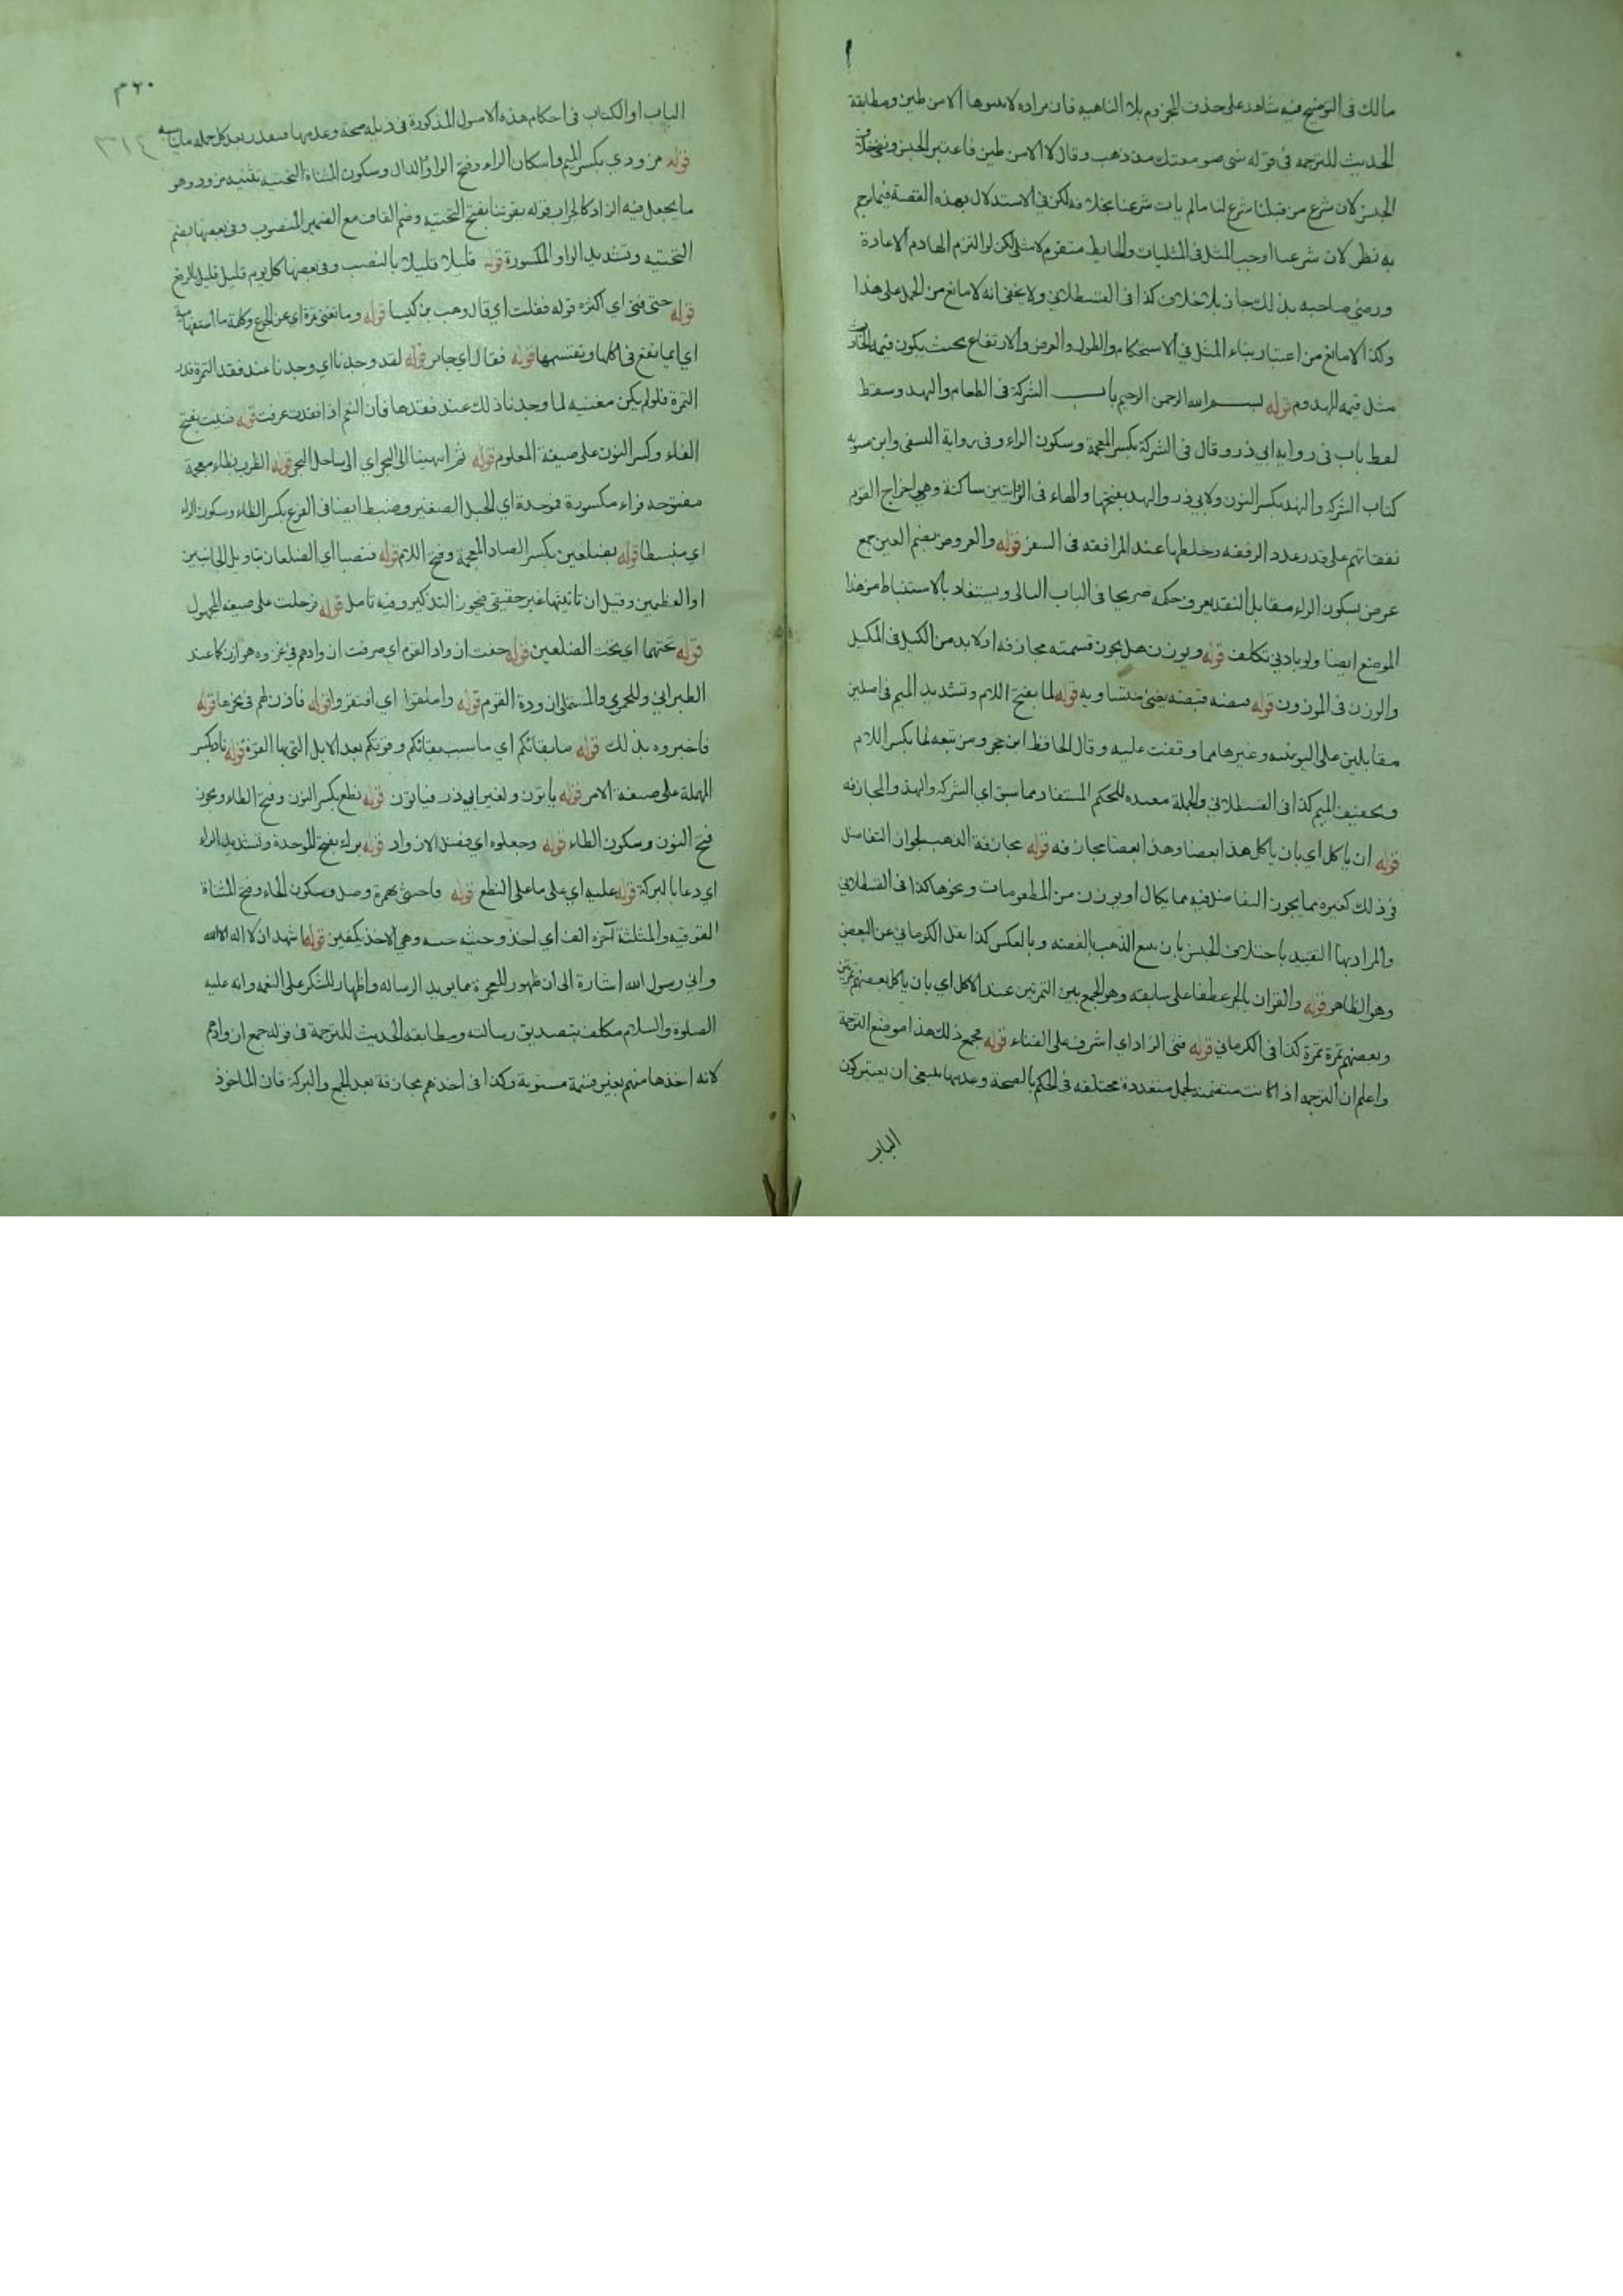 مالك فى التوضيح فيه شاهد على حذف المجزوم بلا الناهيه فان مراده لا تبنوها الا من طين ومطابقة
الحديث للترجمه فى قوله نبنى صومعتك من ذهب وقال لا الا من طين فاعتبر الجنس
الجنس لان شرع من قبلنا شرع لنا مالم يات شرعنا بخلافه لكن في الاستدلال بهذه القصة فيما ترجم
به نظر لان شرعنا اوجب المثل فى المثليات والحايط متقوم لا مثلى لكن لو التزم الهادم الاعادة
ورضي صاحبه بذلك جاز بلا خلاف كذا فى القسطلاني ولا يخفى انه لا مانع من الحمل على هذا
وكذا لا مانع من اعتبار بناء المثل في الاستحكام والطول والعرض والارتفاع بحيث يكون قيمة الحادث
مثل قيمه المهدوم قوله بسم الله الرحمن الرحيم باب الشركة فى الطعام والنهد وسقط
لفظ باب فى روايه ابي ذر وقال فى الشركة بكسر المعجمة وسكون الراء وفى رواية النسفى وابن شبويه
كتاب الشركه والنهد بكسر النون ولابي ذر والنهد بفتحها والهاء فى الروايتين ساكنة وهي اخراج القوم
نفقاتهم على قدر عدد الرفقه وخلطها عند المرافقه فى السفر قوله والعروض بضم العين جمع
عرض بسكون الراء مقابل النقد يعرف حكمه صريحا فى الباب التالى ويستفاد بالاستنباط من هذا
الموضع ايضا ولو بادني تكلف قوله ويوزن هل يجوز قسمته مجازفه اولا بد من الكيل فى المكيل
والوزن فى الموزون قوله قبضه قبضه يعني متساويه قوله لما بفتح اللام وتشديد الميم فى اصلين
مقابلين على اليونينيه وغيرهما مما وقفت عليه وقال الحافظ ابن حجر ومن تبعه لما بكسر اللام
وتخفيف الميم كذا فى القسطلاني والجملة معيده للحكم المستفاد مما سبق اي الشركه والنهد والمجازفه
قوله ان ياكل اي بان ياكل هذا بعضا وهذا بعضا مجازفه قوله مجازفة الذهب لجواز التفاضل
في ذلك كغيره مما يجوز التفاضل فيه مما يكال او يوزن من المطعومات ونحوها كذا فى القسطلاني
والمراد بها التقييد باختلاف الجنس بان بيع الذهب بالفضه وبالعكس كذا نقل الكرماني عن البعض
وهو الظاهر قوله والقران بالجر عطفا على سابقه وهو الجمع بين التمرتين عند الاكل اي بان ياكل بعضهم تمرتين
وبعضهم تمرة تمرة كذا فى الكرماني قوله فنى الزاد اي اشرف على الفناء قوله فجمع ذلك هذا موضع الترجمة
واعلم ان الترجمه اذا كانت متضمنه لجمل متعددة مختلفه فى الحكم بالصحة وعدمها ينبغى ان يعتبر كون
الباب
٣٦٠
٣١٤
الباب او الكتاب فى احكام هذه الاصول المذكورة فى ذيله صحة وعدمها فيقدر بعد كل جمله ما يناسبه
قوله مزودي بكسر الميم واسكان الراء وفتح الواو والدال وسكون المثناة التحتيه تثنيه مزود وهو
ما يجعل فيه الزاد كالجراب قوله يقوتنا بفتح التحتيه وضم القاف مع الضمير المنصوب وفى بعضها بضم
التحتيه وتشديد الواو المكسورة قوله قليلا قليلا بالنصب وفى بعضها كل يوم قليل قليل بالرفع
قوله حتى فنى اي اكثره قوله فقلت اي قال وهب بن كيسان قوله وما تغني تمرة اي عن الجوع وكلمة ما استفهاميه
اي ايما نفع فى اكلها وتقسيمها قوله فقال اي جابر قوله لقد وجدنا اي وجدنا عند فقد التمرة قدر
التمرة فلو لم يكن مغنيه لما وجدنا ذلك عند فقدها فان النعم اذا فقدت عرفت قوله فنيت بفتح
الفاء وكسر النون على صيغة المعلوم قوله ثم انتهينا الى البحر اي الى ساحل البحر قوله الظرب بظاء معجمة
مفتوحه فراء مكسورة فموحدة اي الجبل الصغير وضبط ايضا فى الفرع بكسر الظاء وسكون الراء
اي منبسطا قوله بضلعين بكسر الضاد المعجمة وفتح اللام قوله فنصبا اي الضلعان بتاويل الجانبين
او العظمين وقيل ان تانيثها غير حقيقي فيجوز التذكير وفيه تامل قوله فرحلت على صيغه المجهول
قوله تحتهما اي تحت الضلعين قوله خفت ازواد القوم اي صرفت ازوادهم في غزوه هوازن كما عند
الطبراني وللحموي والمستملي ازودة القوم قوله واملقوا اي افتقروا قوله فاذن لهم فى نحرها قوله
فاخبروه بذلك قوله ما بقائكم اي ما سبب بقائكم وقوتكم بعد الابل التي بها القوة قوله ناد بكسر
المهملة على صيغة الامر قوله ياتون ولغير ابي ذر فياتون قوله نطع بكسر النون وفتح الطاء ويجوز
فتح النون وسكون الطاء قوله وجعلوه اي فضل الازواد قوله برك بفتح الموحدة وتشديد الراء
اي دعا بالبركة قوله عليه اي على ما على النطع قوله فاحتثى بهمزة وصل وسكون الحاء وفتح المثناة
الفوقيه والمثلثة آخره الف اي اخذ وحثيه حثيه وهي الاخذ بكفين قوله اشهد ان لا اله الا الله
واني رسول الله اشارة الى ان ظهور المعجزة مما يويد الرساله واظهار للشكر على النعمه وانه عليه
الصلوة والسلام مكلف بتصديق رسالته ومطابقه الحديث للترجمة فى قوله جمع ازوادهم
لانه اخذها منهم بغير قسمة مستوية وكذا فى اخذهم مجازفة بعد الجمع والبركة فان الماخوذ